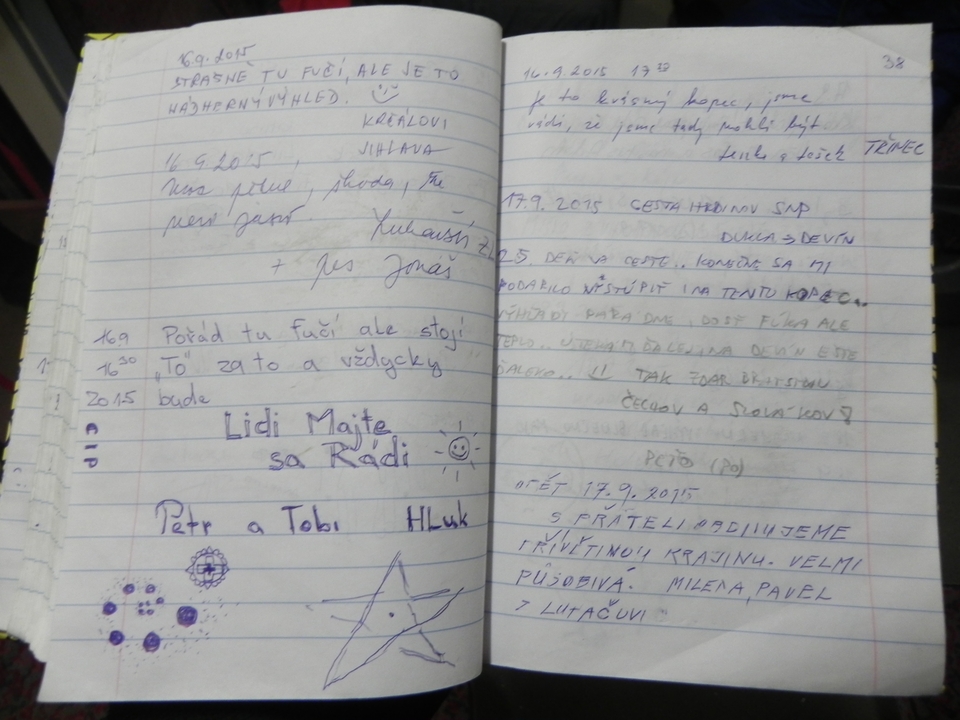 16.9.2015
STRAŠNĚ TU FUČÍ, ALE JE TO
NÁDHERNÝ VÝHLED.
KRÁLOVI
JIHLAVA
16.9.2015,
škoda, že
není jasno.
+ pes Jonáš
169 Pořád tu fučí ale stojí
16³⁰ "To" za to a vždycky
2015 bude
Lidi Majte
sa Rádi
Petr a Tobi HLuk
38
16.9.2015 17³⁰
Je to krásný kopec, jsme
rádi, že jsme tady mohli být
Lenka a Tošek TŘINEC
17.9.2015 CESTA HRDINOV SNP
DUKLA → DEVÍN
25. DEŇ NA CESTE.. KONEČNE SA MI
PODARILO VYSTÚPIŤ I NA TENTO KOPEC..
VÝHĽADY PARÁDNE, DOSŤ FÚKA ALE
TEPLO.. UTEKAM ĎALEJ NA DEVÍN EŠTE
ĎALEKO.. TAK ZDAR
ČECHOV A SLOVÁKOV
PEŤO (PO)
OPĚT 17.9.2015
S PŘÁTELI OBDIVUJEME
PŘÍVĚTIVOU KRAJINU. VELMI
PŮSOBIVÁ. MILENA, PAVEL
LUTAČUVI